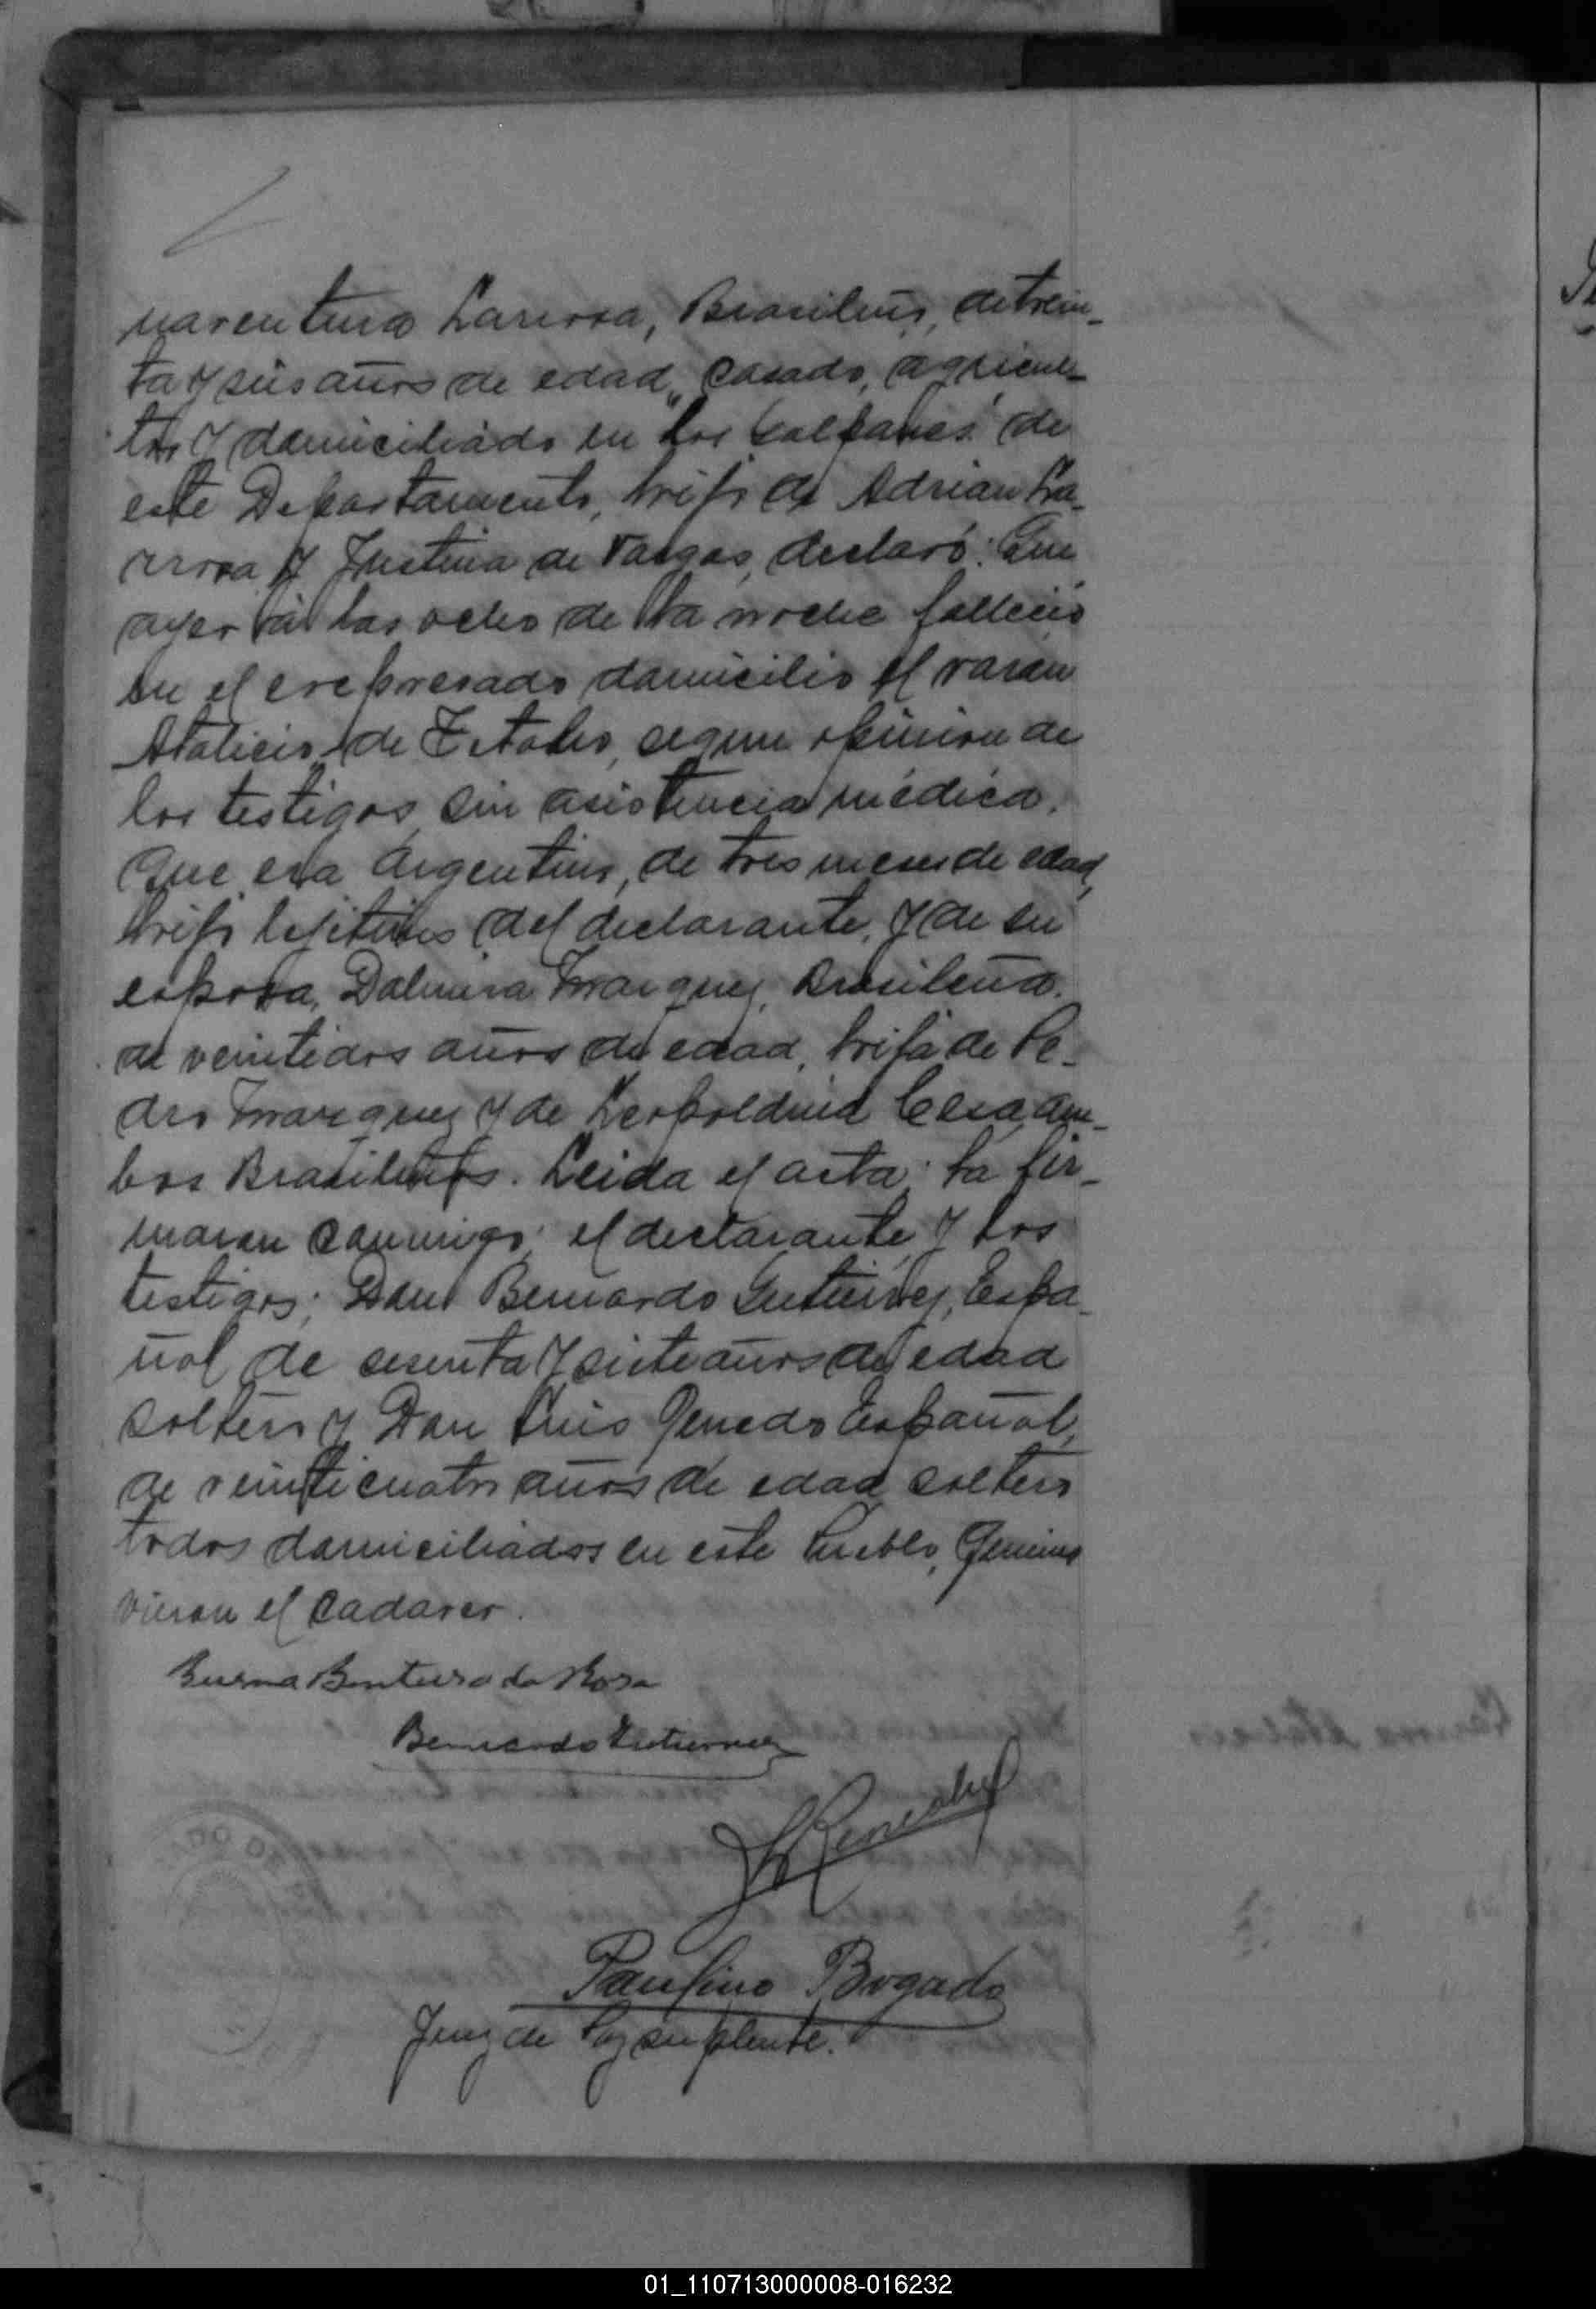 naventura Larrosa, Brasileño, de trein-
ta y seis años de edad, casado, agricul-
tor y domiciliado en "los Galpones" de
este Departamento, hijo de Adrian La-
rrosa y Justina de Vargas, declaró: Que
ayer á las ocho de la noche falleció
en el expresado domicilio el varon
Atalicio, de Tetano, segun opinion de
los testigos, sin asistencia médica.
Que era Argentino, de tres meses de edad,
hijo lejitimo del declarante, y de su
esposa, Dalmira Marquez, Brasileña.
de veintidos años de edad, hija de Pe-
dro Marquez y de Leopoldina am-
bos Brasileños. Leida el acta; la fir-
maron conmigo; el declarante y los
testigos; Don Bernardo Gutierrez, Espa-
ñol de sesenta y siete años de edad
soltero y Don Luis Español,
de veinticuatro años de edad soltero
todos domiciliados en este Pueblo, Quienes
vieron el cadaver.
Buena Bentura da Rosa
Bernardo Gutierrez
Paulino Bogado
Juez de Paz suplente.
01_110713000008-016232